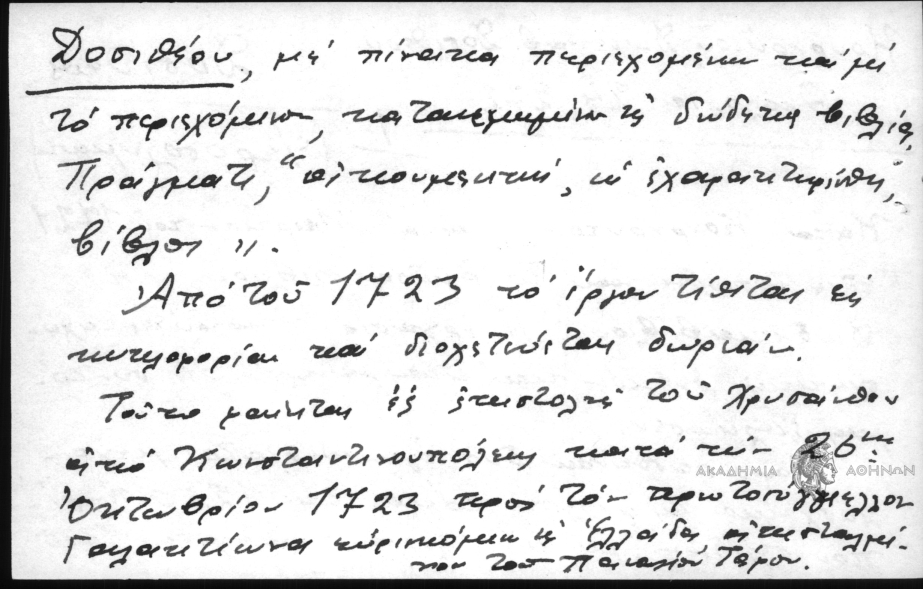 Δοσιθέου, μέ πίνακα περιεχομένων καί μέ
τό περιεχόμενον, κατακεχωρημένον εἰς δώδεκα βιβλία.
Πράγματι, "οἰκουμενική, ὡς ἐχαρακτηρίσθη,
βίβλος".
Ἀπό τοῦ 1723 τό ἔργον τίθεται εἰς
κυκλοφορίαν καί διοχετεύεται δωρεάν.
Τοῦτο φαίνεται ἐξ ἐπιστολῆς τοῦ Χρυσάνθου
ἀπό Κωνσταντινουπόλεως κατά τήν 26ην
Ὀκτωβρίου 1723 πρός τόν πρωτοσύγγελλον
Γαλακτίωνα εὑρισκόμενον εἰς Ἑλλάδα ἀπεσταλμέ-
νον τοῦ Παναγίου Τάφου.
ΑΚΑΔΗΜΙΑ ΑΘΗΝΩΝ